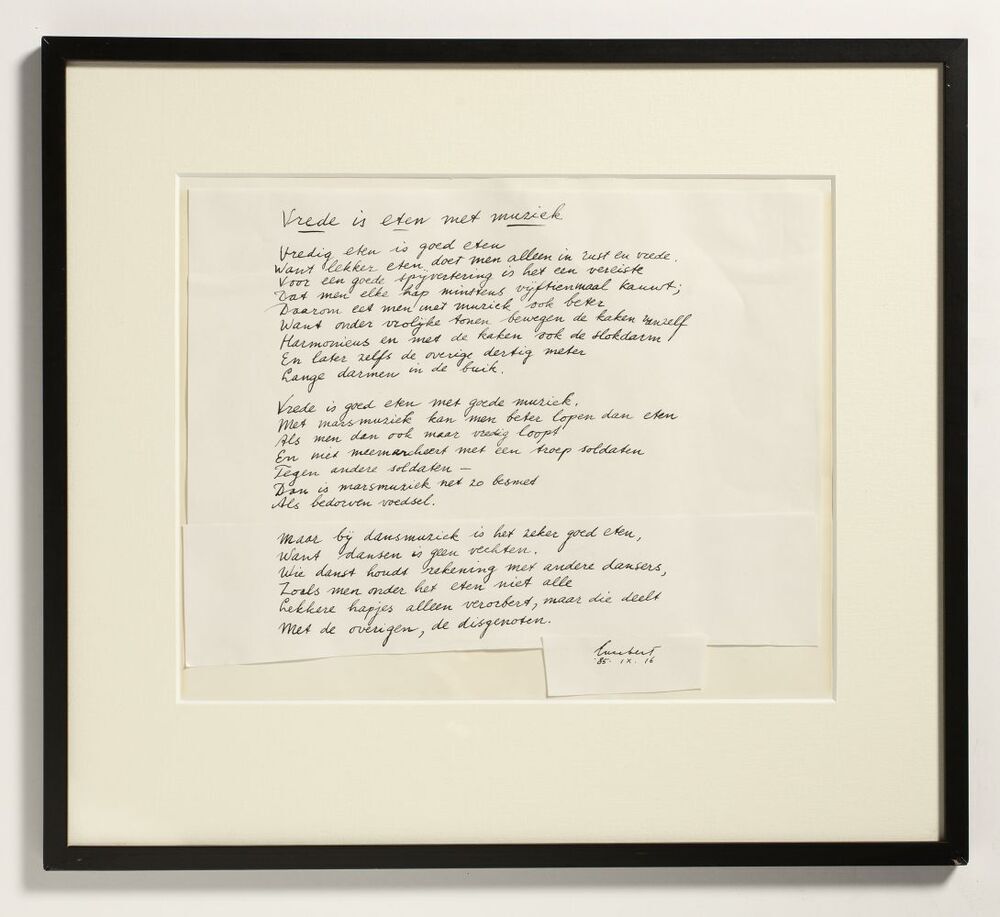 Vrede is eten met muziek
Vredig eten is goed eten
Want lekker eten doet men alleen in rust en vrede.
Voor een goede spijsvertering is het een vereiste
Dat men elke hap minstens vijftienmaal kauwt;
Daarom eet men met muziek ook beter
Want onder vrolijke tonen bewegen de kaken vanzelf
Harmonieus en met de kaken ook de slokdarm
En later zelfs de overige dertig meter
Lange darmen in de buik.
Vrede is goed eten met goede muziek.
Met marsmuziek kan men beter lopen dan eten
Als men dan ook maar vredig loopt
En niet meemarcheert met een troep soldaten
Tegen andere soldaten —
Dan is marsmuziek net zo besmet
Als bedorven voedsel.
Maar bij dansmuziek is het zeker goed eten,
Want dansen is geen vechten.
Wie danst houdt rekening met andere dansers,
Zoals men onder het eten niet alle
Lekkere hapjes alleen verorbert, maar die deelt
Met de overigen, de disgenoten.
Lucebert
'85. IX. 16